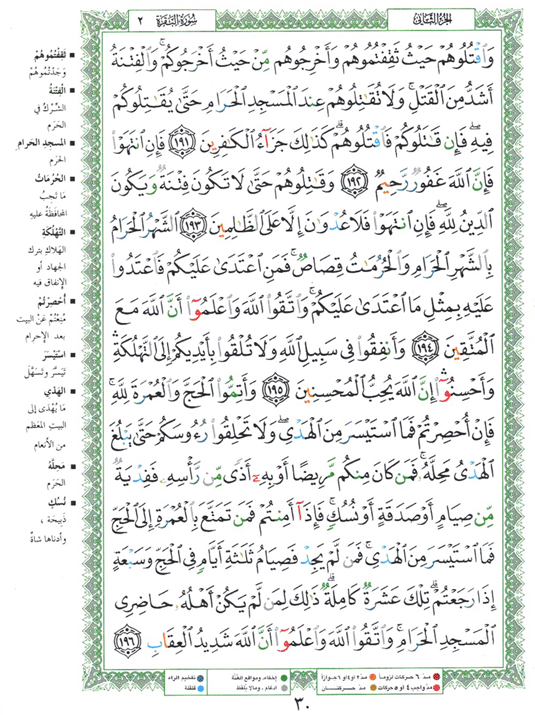 الجزء الثاني
سورة البقرة ٢
وَاقْتُلُوهُمْ حَيْثُ ثَقِفْتُمُوهُمْ وَأَخْرِجُوهُم مِّنْ حَيْثُ أَخْرَجُوكُمْ ۚ وَالْفِتْنَةُ
أَشَدُّ مِنَ الْقَتْلِ ۚ وَلَا تُقَاتِلُوهُمْ عِندَ الْمَسْجِدِ الْحَرَامِ حَتَّىٰ يُقَاتِلُوكُمْ
فِيهِ ۖ فَإِن قَاتَلُوكُمْ فَاقْتُلُوهُمْ ۗ كَذَٰلِكَ جَزَاءُ الْكَافِرِينَ ﴿١٩١﴾ فَإِنِ انتَهَوْا
فَإِنَّ اللَّهَ غَفُورٌ رَّحِيمٌ ﴿١٩٢﴾ وَقَاتِلُوهُمْ حَتَّىٰ لَا تَكُونَ فِتْنَةٌ وَيَكُونَ
الدِّينُ لِلَّهِ ۖ فَإِنِ انتَهَوْا فَلَا عُدْوَانَ إِلَّا عَلَى الظَّالِمِينَ ﴿١٩٣﴾ الشَّهْرُ الْحَرَامُ
بِالشَّهْرِ الْحَرَامِ وَالْحُرُمَاتُ قِصَاصٌ ۚ فَمَنِ اعْتَدَىٰ عَلَيْكُمْ فَاعْتَدُوا
عَلَيْهِ بِمِثْلِ مَا اعْتَدَىٰ عَلَيْكُمْ ۚ وَاتَّقُوا اللَّهَ وَاعْلَمُوا أَنَّ اللَّهَ مَعَ
الْمُتَّقِينَ ﴿١٩٤﴾ وَأَنفِقُوا فِي سَبِيلِ اللَّهِ وَلَا تُلْقُوا بِأَيْدِيكُمْ إِلَى التَّهْلُكَةِ ۛ
وَأَحْسِنُوا ۛ إِنَّ اللَّهَ يُحِبُّ الْمُحْسِنِينَ ﴿١٩٥﴾ وَأَتِمُّوا الْحَجَّ وَالْعُمْرَةَ لِلَّهِ ۚ
فَإِنْ أُحْصِرْتُمْ فَمَا اسْتَيْسَرَ مِنَ الْهَدْيِ ۖ وَلَا تَحْلِقُوا رُءُوسَكُمْ حَتَّىٰ يَبْلُغَ
الْهَدْيُ مَحِلَّهُ ۚ فَمَن كَانَ مِنكُم مَّرِيضًا أَوْ بِهِ أَذًى مِّن رَّأْسِهِ فَفِدْيَةٌ
مِّن صِيَامٍ أَوْ صَدَقَةٍ أَوْ نُسُكٍ ۚ فَإِذَا أَمِنتُمْ فَمَن تَمَتَّعَ بِالْعُمْرَةِ إِلَى الْحَجِّ
فَمَا اسْتَيْسَرَ مِنَ الْهَدْيِ ۚ فَمَن لَّمْ يَجِدْ فَصِيَامُ ثَلَاثَةِ أَيَّامٍ فِي الْحَجِّ وَسَبْعَةٍ
إِذَا رَجَعْتُمْ ۗ تِلْكَ عَشَرَةٌ كَامِلَةٌ ۗ ذَٰلِكَ لِمَن لَّمْ يَكُنْ أَهْلُهُ حَاضِرِي
الْمَسْجِدِ الْحَرَامِ ۚ وَاتَّقُوا اللَّهَ وَاعْلَمُوا أَنَّ اللَّهَ شَدِيدُ الْعِقَابِ ﴿١٩٦﴾
ثَقِفْتُمُوهُمْ
وَجَدْتُمُوهُمْ
الْفِتْنَةُ
الشِّرْكُ في
الحَرَم
المسجد الحرام
الحرَم
الحُرُمَاتُ
مَا تَجِبُ
المحافظةُ عليهِ
التَّهْلُكَةِ
الهَلاكِ بترك
الجهاد أو
الإنفاق فيه
أُحْصِرْتُمْ
مُنِعْتُمْ عَنْ البيت
بعد الإحرام
اسْتَيْسَرَ
تَيَسَّرَ وتَسَهَّلَ
الهَدْي
مَا يُهْدَى إلى
البيتِ المعَظَّم
من الأنعام
مَحِلَّهُ
الحَرَم
نُسُكٍ
ذَبِيحَة ،
وأدناها شاةٌ
مدّ ٦ حركات لزوماً
مدّ ٢ أو ٤ أو ٦ جوازاً
إخفاء، ومواقع الغُنَّة
تفخيم الراء
مدّ واجب ٤ أو ٥ حركات
مدّ حركتان
ادغام، وما لا يُلفَظ
قلقلة
٣٠